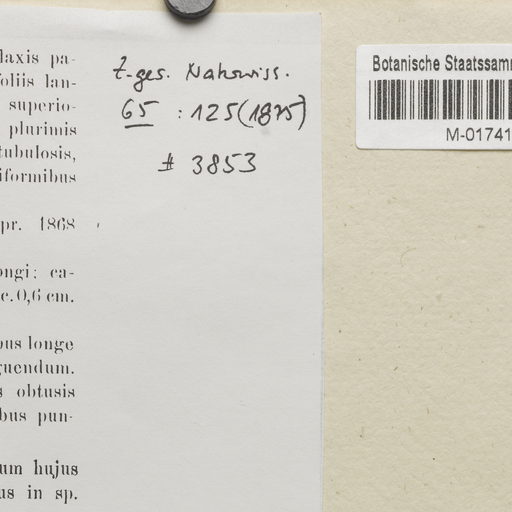 laxis pa-
foliis lan-
superio-
plurimis
tubulosis,
iformibus
pr. 1868
ongi; ca-
c. 0,6 cm.
bus longe
guendum.
s obtusis
bus pun-
um hujus
us in sp.
Z. ges. Naturwiss.
65 : 125 (1895)
# 3853
Botanische Staatssamm
M-01741